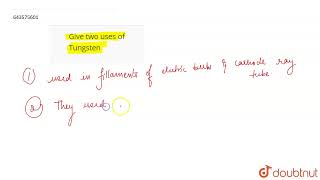 643575601
Give two uses of
Tungsten
① used in fillaments of electric bulbs & cathode ray
tube
② They used
doubtnut